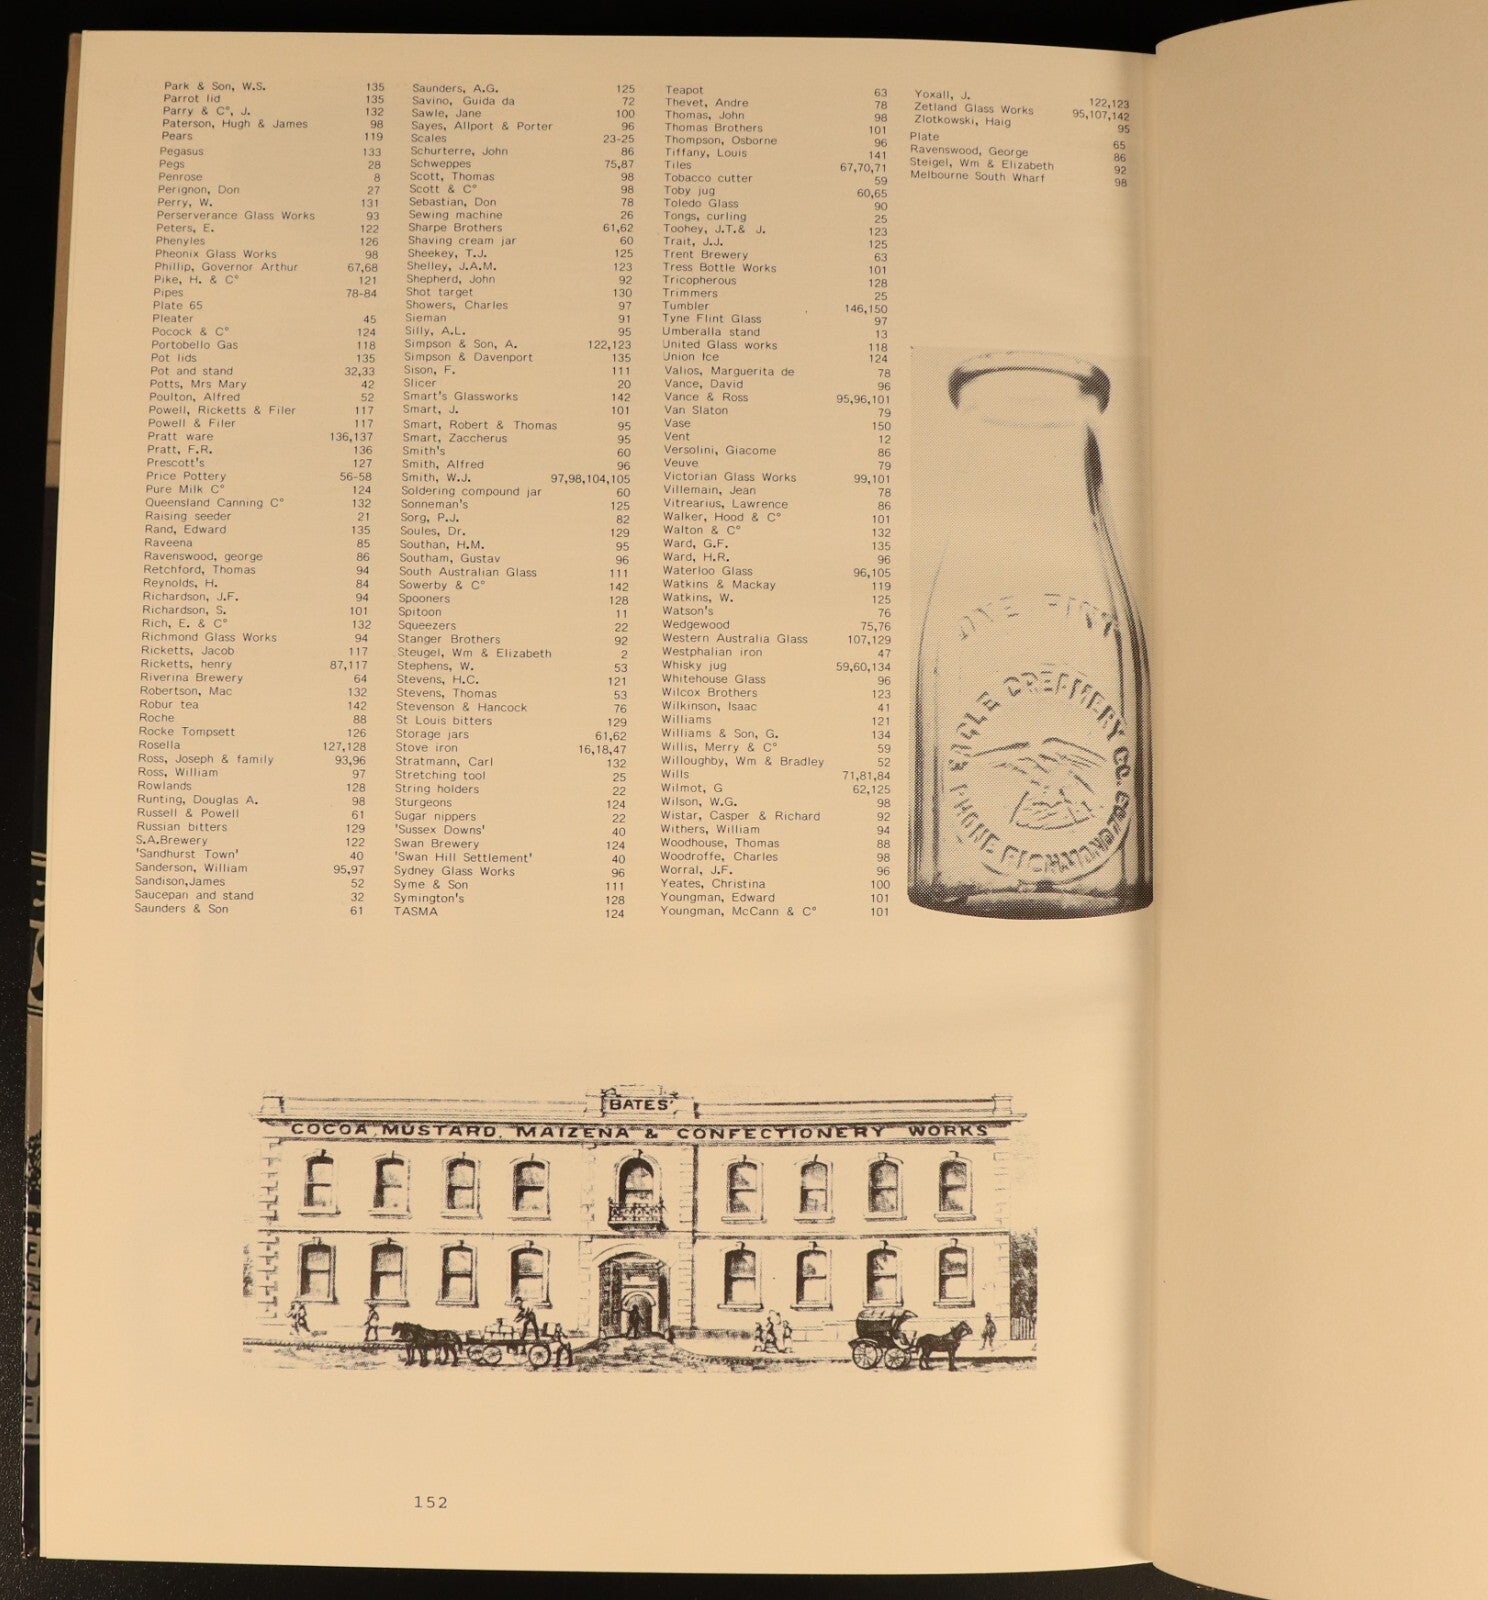 Park & Son, W.S. 135
Parrot lid 135
Parry & C°, J. 132
Paterson, Hugh & James 98
Pears 119
Pegasus 133
Pegs 28
Penrose 8
Perignon, Don 27
Perry, W. 131
Perserverance Glass Works 93
Peters, E. 122
Phenyles 126
Pheonix Glass Works 98
Phillip, Governor Arthur 67,68
Pike, H. & C° 121
Pipes 78-84
Plate 65
Pleater 45
Pocock & C° 124
Portobello Gas 118
Pot lids 135
Pot and stand 32,33
Potts, Mrs Mary 42
Poulton, Alfred 52
Powell, Ricketts & Filer 117
Powell & Filer 117
Pratt ware 136,137
Pratt, F.R. 136
Prescott's 127
Price Pottery 56-58
Pure Milk C° 124
Queensland Canning C° 132
Raising seeder 21
Rand, Edward 135
Raveena 85
Ravenswood, george 86
Retchford, Thomas 94
Reynolds, H. 84
Richardson, J.F. 94
Richardson, S. 101
Rich, E. & C° 132
Richmond Glass Works 94
Ricketts, Jacob 117
Ricketts, henry 87,117
Riverina Brewery 64
Robertson, Mac 132
Robur tea 142
Roche 88
Rocke Tompsett 126
Rosella 127,128
Ross, Joseph & family 93,96
Ross, William 97
Rowlands 128
Runting, Douglas A. 98
Russell & Powell 61
Russian bitters 129
S.A.Brewery 122
'Sandhurst Town' 40
Sanderson, William 95,97
Sandison,James 52
Saucepan and stand 32
Saunders & Son 61
Saunders, A.G. 125
Savino, Guida da 72
Sawle, Jane 100
Sayes, Allport & Porter 96
Scales 23-25
Schurterre, John 86
Schweppes 75,87
Scott, Thomas 98
Scott & C° 98
Sebastian, Don 78
Sewing machine 26
Sharpe Brothers 61,62
Shaving cream jar 60
Sheekey, T.J. 125
Shelley, J.A.M. 123
Shepherd, John 92
Shot target 130
Showers, Charles 97
Sieman 91
Silly, A.L. 95
Simpson & Son, A. 122,123
Simpson & Davenport 135
Sison, F. 111
Slicer 20
Smart's Glassworks 142
Smart, J. 101
Smart, Robert & Thomas 95
Smart, Zaccherus 95
Smith's 60
Smith, Alfred 96
Smith, W.J. 97,98,104,105
Soldering compound jar 60
Sonneman's 125
Sorg, P.J. 82
Soules, Dr. 129
Southan, H.M. 95
Southam, Gustav 96
South Australian Glass 111
Sowerby & C° 142
Spooners 128
Spitoon 11
Squeezers 22
Stanger Brothers 92
Steugel, Wm & Elizabeth 2
Stephens, W. 53
Stevens, H.C. 121
Stevens, Thomas 53
Stevenson & Hancock 76
St Louis bitters 129
Storage jars 61,62
Stove iron 16,18,47
Stratmann, Carl 132
Stretching tool 25
String holders 22
Sturgeons 124
Sugar nippers 22
'Sussex Downs' 40
Swan Brewery 124
'Swan Hill Settlement' 40
Sydney Glass Works 96
Syme & Son 111
Symington's 128
TASMA 124
Teapot 63
Thevet, Andre 78
Thomas, John 98
Thomas Brothers 101
Thompson, Osborne 96
Tiffany, Louis 141
Tiles 67,70,71
Tobacco cutter 59
Toby jug 60,65
Toledo Glass 90
Tongs, curling 25
Toohey, J.T.& J. 123
Trait, J.J. 125
Trent Brewery 63
Tress Bottle Works 101
Tricopherous 128
Trimmers 25
Tumbler 146,150
Tyne Flint Glass 97
Umberalla stand 13
United Glass works 118
Union Ice 124
Valios, Marguerita de 78
Vance, David 96
Vance & Ross 95,96,101
Van Slaton 79
Vase 150
Vent 12
Versolini, Giacome 86
Veuve 79
Victorian Glass Works 99,101
Villemain, Jean 78
Vitrearius, Lawrence 86
Walker, Hood & C° 101
Walton & C° 132
Ward, G.F. 135
Ward, H.R. 96
Waterloo Glass 96,105
Watkins & Mackay 119
Watkins, W. 125
Watson's 76
Wedgewood 75,76
Western Australia Glass 107,129
Westphalian iron 47
Whisky jug 59,60,134
Whitehouse Glass 96
Wilcox Brothers 123
Wilkinson, Isaac 41
Williams 121
Williams & Son, G. 134
Willis, Merry & C° 59
Willoughby, Wm & Bradley 52
Wills 71,81,84
Wilmot, G 62,125
Wilson, W.G. 98
Wistar, Casper & Richard 92
Withers, William 94
Woodhouse, Thomas 88
Woodroffe, Charles 98
Worral, J.F. 96
Yeates, Christina 100
Youngman, Edward 101
Youngman, McCann & C° 101
Yoxall, J. 122,123
Zetland Glass Works 95,107,142
Zlotkowski, Haig 95
Plate 65
Ravenswood, George 86
Steigel, Wm & Elizabeth 92
Melbourne South Wharf 98
ONE PINT
EAGLE CREAMERY CO.
PHONE
BATES'
COCOA, MUSTARD, MAIZENA & CONFECTIONERY WORKS
152